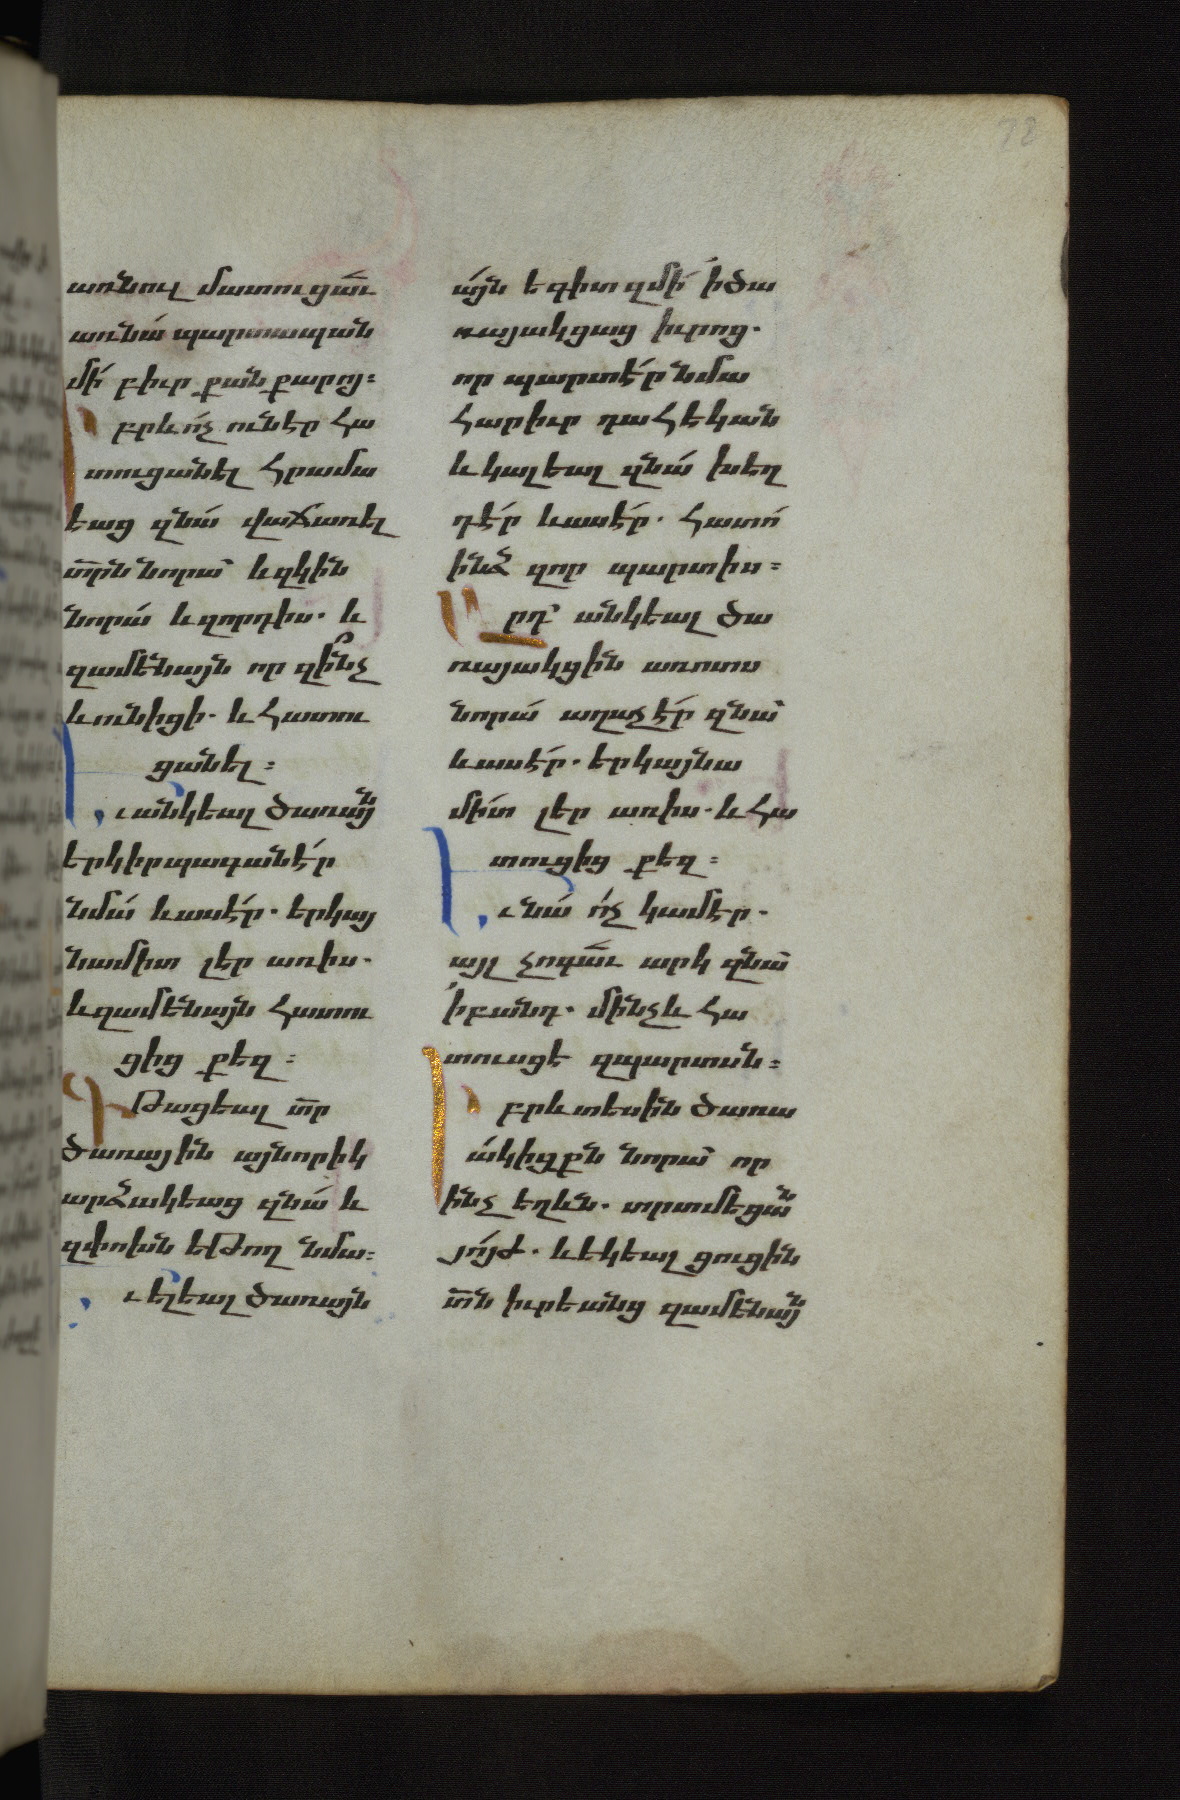 72
առնուլ մատուցաւ
առնմա պարտապան
մի՛ բիւր քան քարոյ։
Իբրև ո՛չ ունէր հա
տուցանել հրամա
եաց զնա՛ վաճառել
տրն նորա՛ և զկին
նորա՛ և զորդիս. և
զամենայն որ զի՞նչ
և ունիցի. և հատու
ցանել։
Եւ անկեալ ծառայն
երկիր պագանէ՛ր
նմա՛ և ասէ՛ր. երկայ
նամիտ լեր առիս.
և զամենայն հատու
ցից քեզ։
Գթացեալ տր
ծառային այնորիկ
արձակեաց զնա՛ և
զփոխն եթող նմա։
Եւ ելեալ ծառայն
այն եգիտ զմի՛ ի ծա
ռայակցաց իւրոց.
որ պարտէ՛ր նմա
հարիւր դահեկան
և կալեալ զնա՛ խեղ
դէ՛ր և ասէ՛ր. հատո՛
ինձ զոր պարտիս։
Արդ՝ անկեալ ծա
ռայակցին առոտս
նորա՛ աղաչէ՛ր զնա՛
և ասէ՛ր. երկայնա
միտ լեր առիս. և հա
տուցից քեզ։
Եւ նա՛ ո՛չ կամէր.
այլ չոգաւ արկ զնա՛
ի բանդ. մինչև հա
տուսցէ զպարտսն։
Իբրև տեսին ծառա
յակիցքն նորա՛ որ
ինչ եղևն. տրտմեցան
յո՛յժ. և եկեալ ցուցին
տն իւրեանց զամենայն